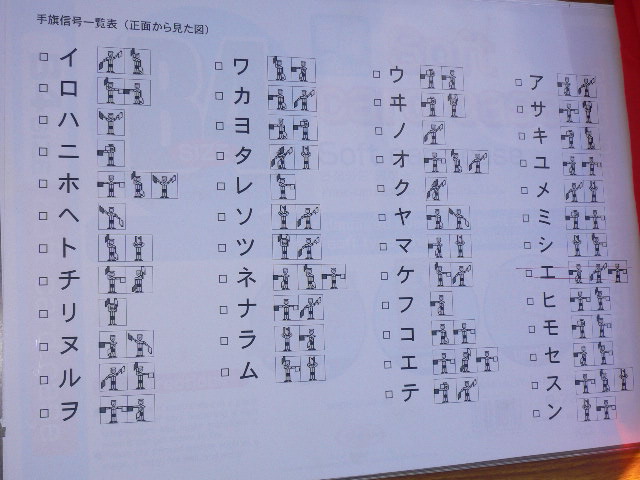 手旗信号一覧表（正面から見た図）
□ イ
□ ロ
□ ハ
□ ニ
□ ホ
□ ヘ
□ ト
□ チ
□ リ
□ ヌ
□ ル
□ ヲ
□ ワ
□ カ
□ ヨ
□ タ
□ レ
□ ソ
□ ツ
□ ネ
□ ナ
□ ラ
□ ム
□ ウ
□ ヰ
□ ノ
□ オ
□ ク
□ ヤ
□ マ
□ ケ
□ フ
□ コ
□ エ
□ テ
□ ア
□ サ
□ キ
□ ユ
□ メ
□ ミ
□ シ
□ エ
□ ヒ
□ モ
□ セ
□ ス
□ ン